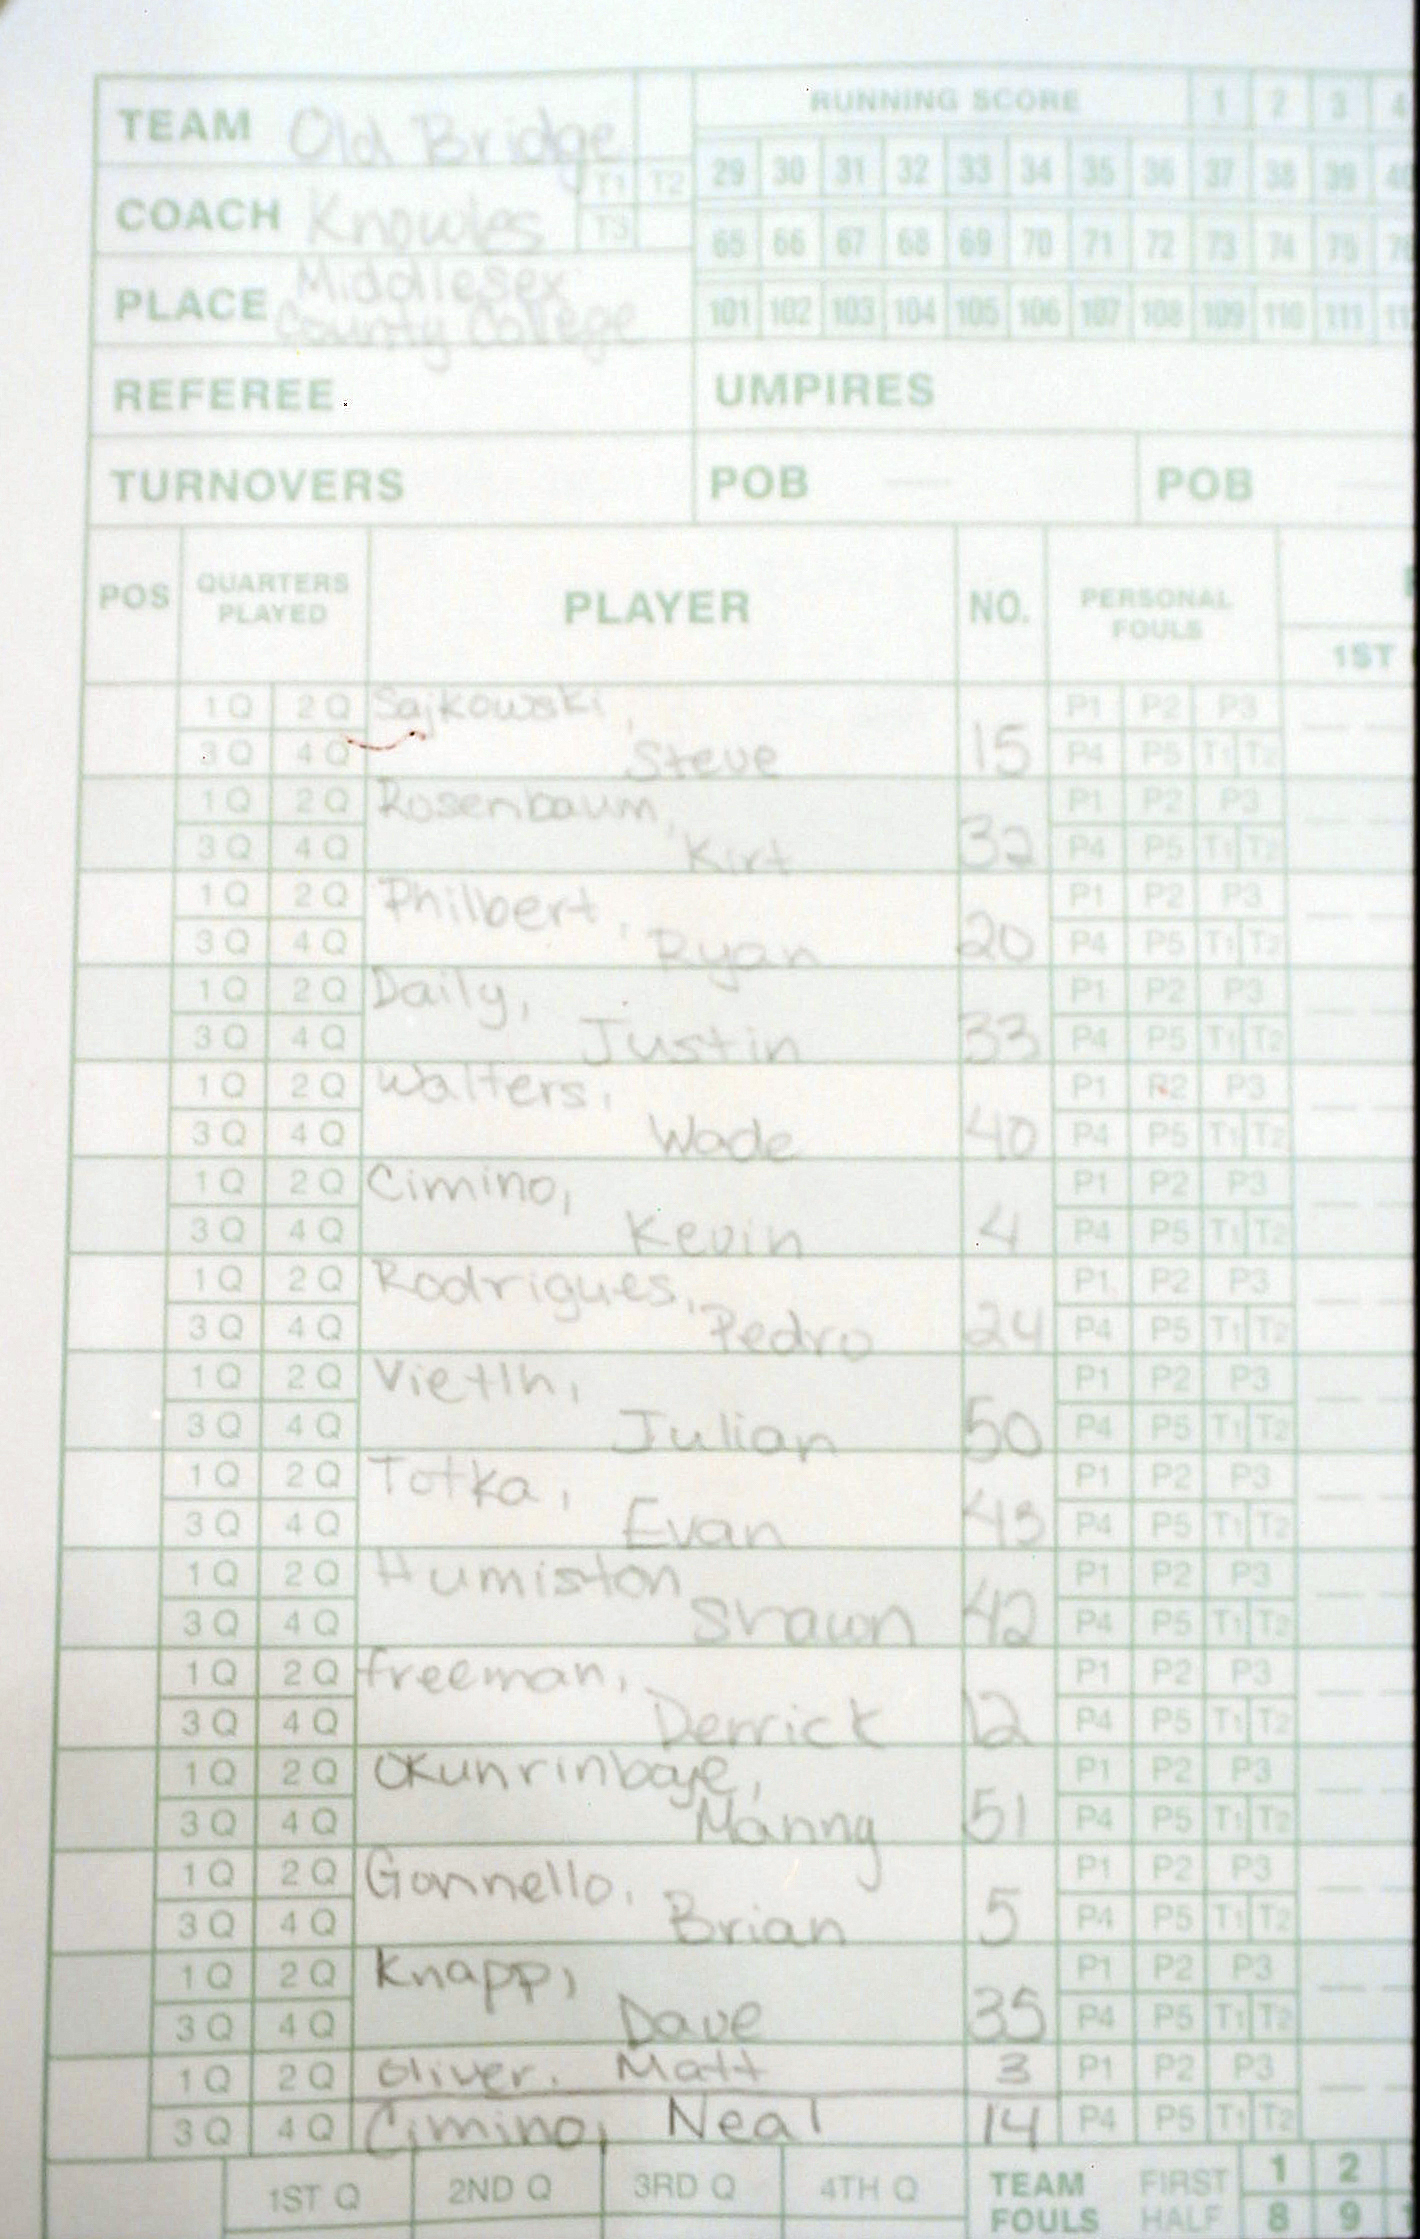 TEAM Old Bridge
RUNNING SCORE 1 2 3 4
T1 T2
29 30 31 32 33 34 35 36 37 38 39 40
COACH Knowles T3
65 66 67 68 69 70 71 72 73 74 75 76
PLACE Middlesex
County College
101 102 103 104 105 106 107 108 109 110 111
REFEREE UMPIRES
TURNOVERS POB POB
POS QUARTERS PLAYED PLAYER NO. PERSONAL FOULS
1ST
1Q 2Q Sajkowski, P1 P2 P3
3Q 4Q Steve 15 P4 P5 T1 T2
1Q 2Q Rosenbaum, P1 P2 P3
3Q 4Q Kirt 32 P4 P5 T1 T2
1Q 2Q Philbert, P1 P2 P3
3Q 4Q Ryan 20 P4 P5 T1 T2
1Q 2Q Daily, P1 P2 P3
3Q 4Q Justin 33 P4 P5 T1 T2
1Q 2Q Walters, P1 P2 P3
3Q 4Q Wade 40 P4 P5 T1 T2
1Q 2Q Cimino, P1 P2 P3
3Q 4Q Kevin 4 P4 P5 T1 T2
1Q 2Q Rodrigues, P1 P2 P3
3Q 4Q Pedro 24 P4 P5 T1 T2
1Q 2Q Vietlh, P1 P2 P3
3Q 4Q Julian 50 P4 P5 T1 T2
1Q 2Q Totka, P1 P2 P3
3Q 4Q Evan 43 P4 P5 T1 T2
1Q 2Q Humiston P1 P2 P3
3Q 4Q Shawn 42 P4 P5 T1 T2
1Q 2Q freeman, P1 P2 P3
3Q 4Q Derrick 12 P4 P5 T1 T2
1Q 2Q Okunrinboye, P1 P2 P3
3Q 4Q Manny 51 P4 P5 T1 T2
1Q 2Q Gonnello, P1 P2 P3
3Q 4Q Brian 5 P4 P5 T1 T2
1Q 2Q Knapp, P1 P2 P3
3Q 4Q Dave 35 P4 P5 T1 T2
1Q 2Q Oliver, Matt 3 P1 P2 P3
3Q 4Q Cimino, Neal 14 P4 P5 T1 T2
1ST Q 2ND Q 3RD Q 4TH Q TEAM FIRST 1 2
FOULS HALF 8 9